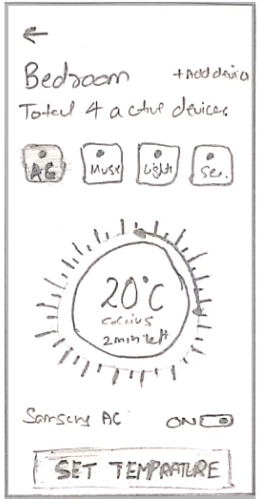 Bedroom
+Add device
Total 4 active devices
AC
Music
Light
Sec.
20°C
Celcius
2 min left
Samsung AC
ON
SET TEMPRATURE